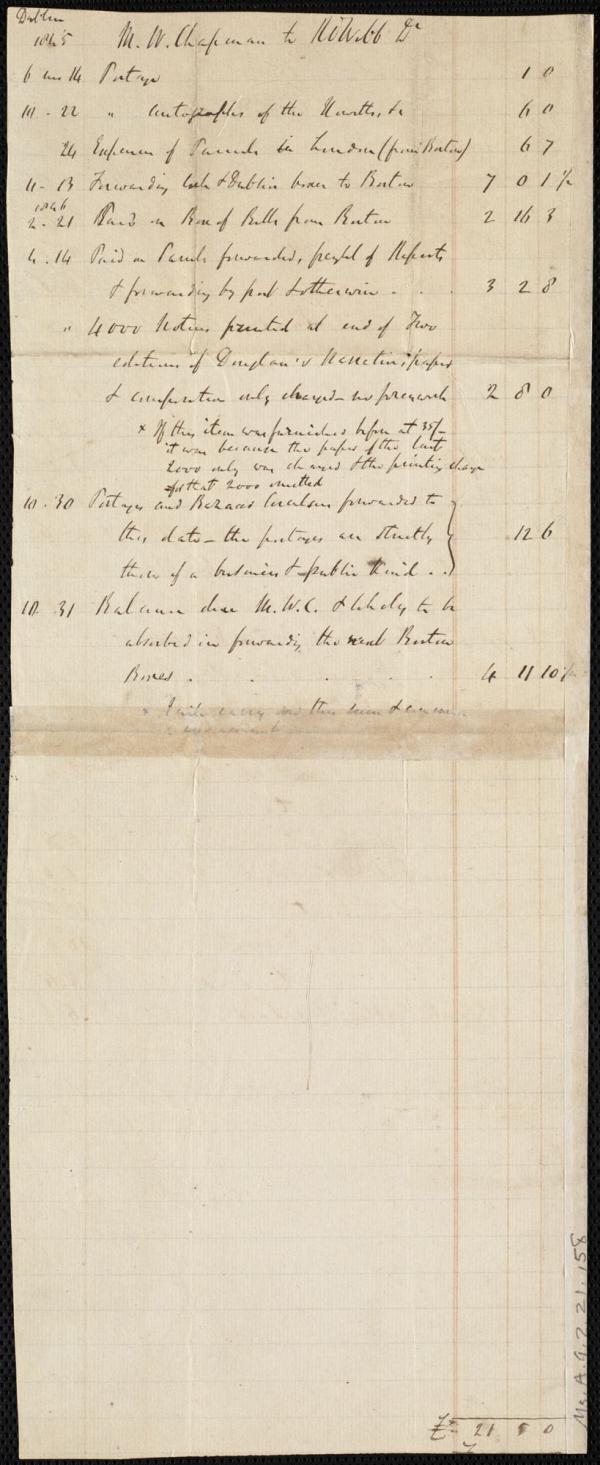 Dublin
1845 M. W. Chapman to R D Webb Dr
6 mo 14 Postage 1 0
10 - 22 " autographs of the Howitts, &c 6 0
24 Expenses of Parcels in London (from Boston) 6 7
11 - 13 Forwarding Cork & Dublin boxes to Boston 7 0 1 1/2
1846
2 - 21 Paid on Box of Bells from Boston 2 16 3
4 - 14 Paid on Parcels forwarded, freight of Reports
& forwarding by post & otherwise . . . 3 2 8
" 4000 Notices printed at end of Two
editions of Douglass's Narrative, paper
& composition only charged - no presswork 2 8 0
x If this item was furnished before at 35/-
it was because the paper of the last
2000 only was charged & the printing charge
of that 2000 omitted
10 - 30 Postages and Bazaar Circulars forwarded to
this date - the postages are strictly 12 6
those of a business & public kind . .
10 31 Balance due M. W. C. & likely to be
absorbed in forwarding the next Boston
Boxes . . . . . 4 11 10 1/2
x
£ 21 5 0
Ms. A. 9. 2. 21. 158